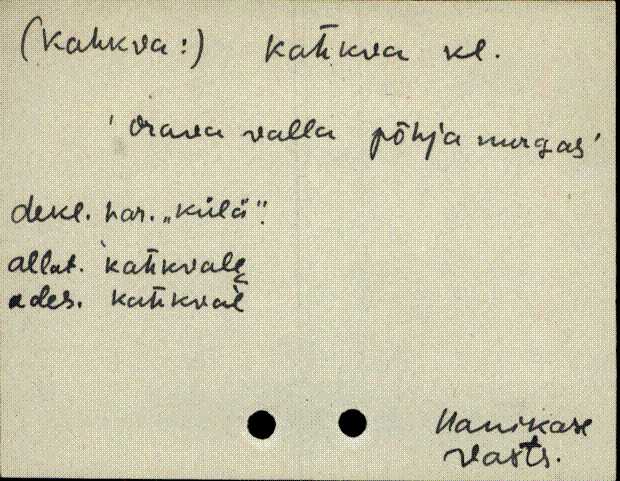 (Kahkva:) Kah̄kva kl.
'Orava valla põhja nurgas'
dekl. har. „külä".
allat. ˋkah̄kvalȩ
ades. kah̄kval̄
Hanikase
Vasts.